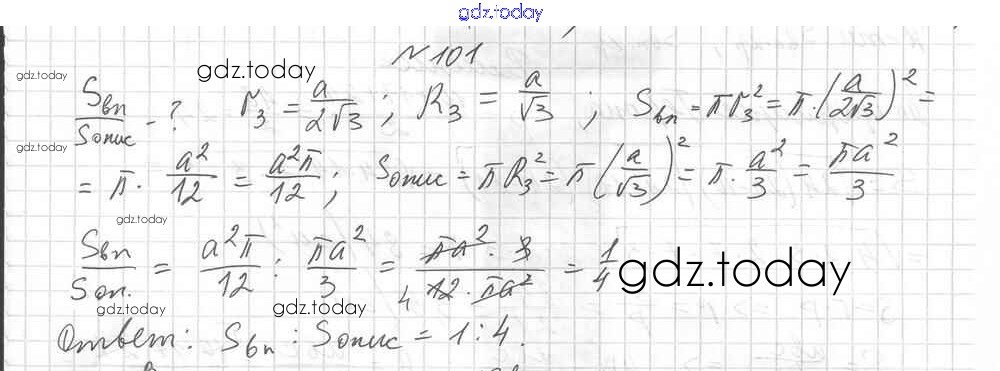 gdz.today
№101
gdz.today gdz.today
Sвп/Sопис - ? r₃ = a/2√3 ; R₃ = a/√3 ; Sвп = πr₃² = π·(a/2√3)² =
gdz.today
= π · a²/12 = a²π/12 ; Sопис = πR₃² = π(a/√3)² = π · a²/3 = πa²/3
gdz.today
Sвп/Sоп. = a²π/12 : πa²/3 = πa² · 3/12 · πa² 4 = 1/4 gdz.today
gdz.today gdz.today
Ответ: Sвп : Sопис = 1 : 4.